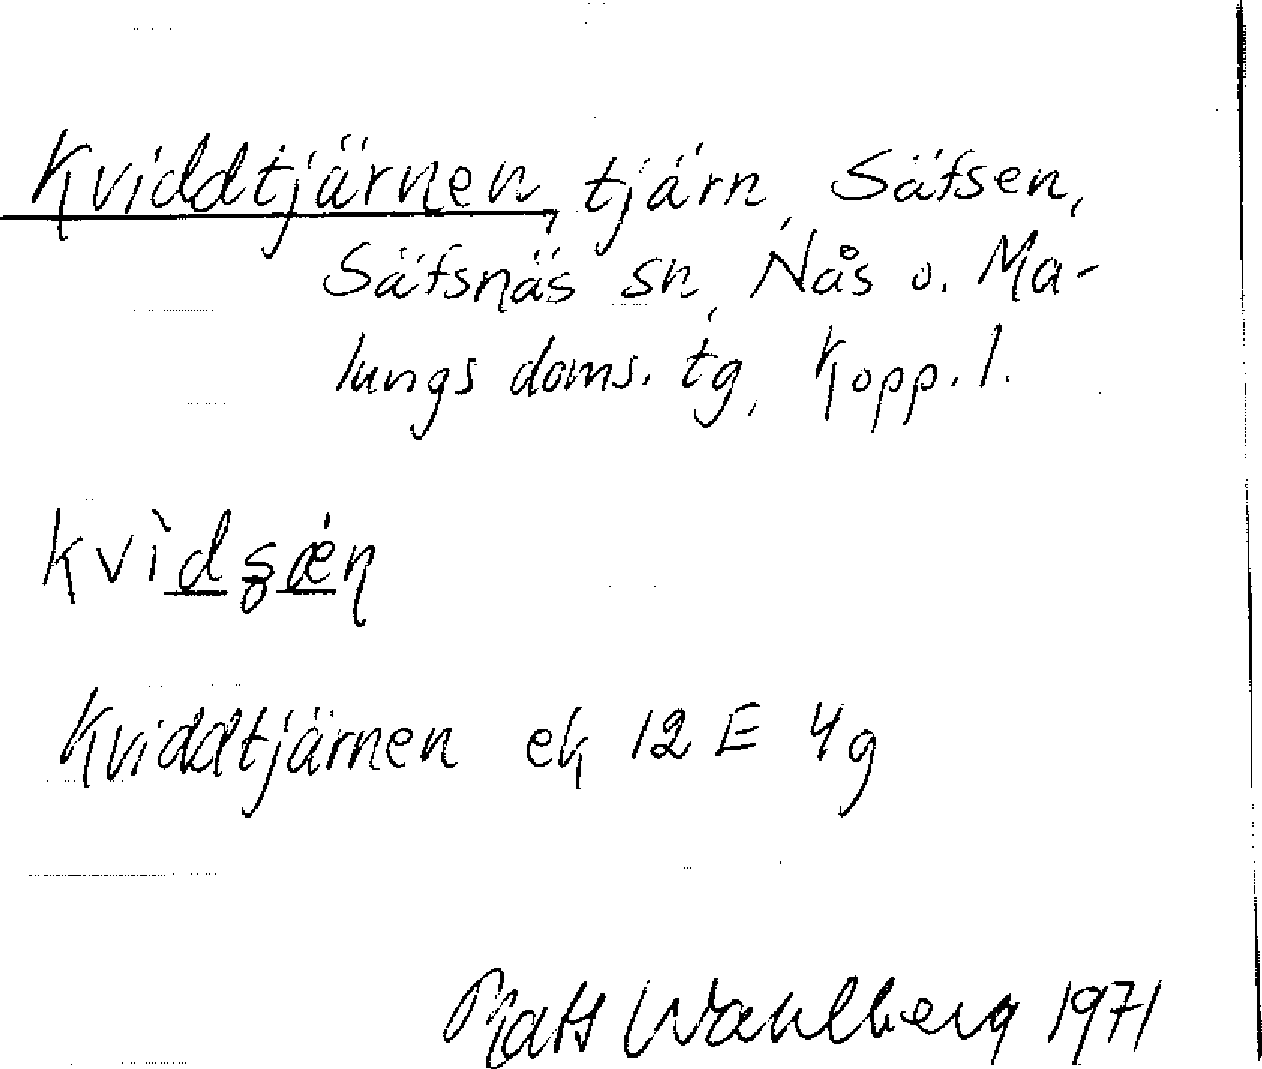 Kviddtjärnen, tjärn, Säfsen,
Säfsnäs sn, Nås o. Ma-
lungs doms. tg, Kopp. l.
Kviddtjärnen ek 12 E 4g
Mats Wahlberg 1971